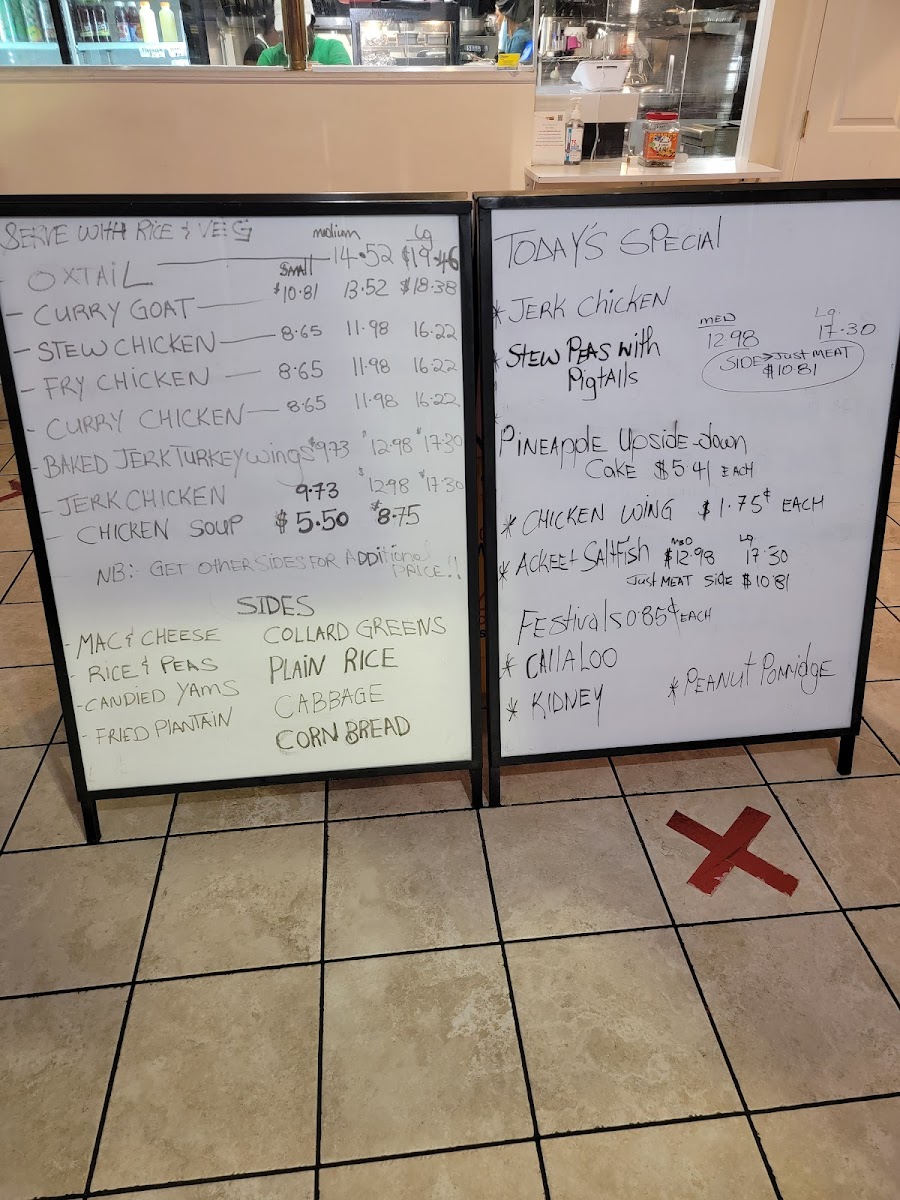 SERVE WITH RICE & VEIG
medium Lg
OXTAIL 14.52 $19.46
SMALL
- CURRY GOAT $10.81 13.52 $18.38
- STEW CHICKEN 8.65 11.98 16.22
- FRY CHICKEN 8.65 11.98 16.22
- CURRY CHICKEN 8.65 11.98 16.22
- BAKED JERK TURKEY wings $9.73 $12.98 $17.30
- JERK CHICKEN 9.73 $12.98 $17.30
- CHICKEN SOUP $5.50 $8.75
NB:- GET OTHER SIDES FOR ADDitional
PRICE!!
SIDES
- MAC & CHEESE COLLARD GREENS
- RICE & PEAS PLAIN RICE
- CANDIED YAMS CABBAGE
- FRIED PLANTAIN CORN BREAD
TODAY'S SPECIAL
* JERK CHICKEN
MED Lg.
* STEW PEAS with 12.98 17.30
PigtAils
SIDE > Just MEAT
$10.81
PINEAPPLE Upside-down
CAKE $5.41 EACH
* CHICKEN WING $1.75¢ EACH
MED Lg.
* ACKEE + SALTFISH $12.98 17.30
Just MEAT SIDE $10.81
FEstivals 0.85¢ EACH
* CAllALOO
* KIDNEY * PEANUT PORRidgE